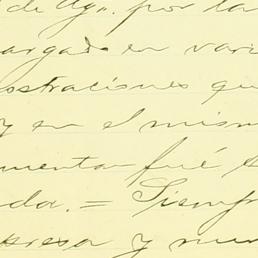 de Ago. por la
argado en vari
ostraciones qu
y en el mism
menta fué s
da. = Siempr
presa y nu